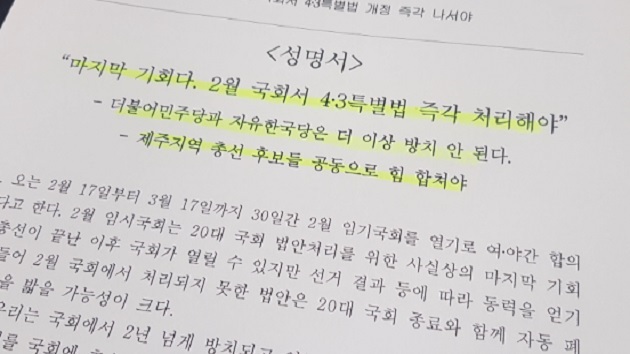 4·3특별법 개정 즉각 나서야
<성명서>
“마지막 기회다. 2월 국회서 4·3특별법 즉각 처리해야”
- 더불어민주당과 자유한국당은 더 이상 방치 안 된다.
- 제주지역 총선 후보들 공동으로 힘 합쳐야
오는 2월 17일부터 3월 17일까지 30일간 2월 임기국회를 열기로 여·야간 합의
다고 한다. 2월 임시국회는 20대 국회 법안처리를 위한 사실상의 마지막 기회
총선이 끝난 이후 국회가 열릴 수 있지만 선거 결과 등에 따라 동력을 얻기
들어 2월 국회에서 처리되지 못한 법안은 20대 국회 종료와 함께 자동 폐
을 밟을 가능성이 크다.
우리는 국회에서 2년 넘게 방치되고